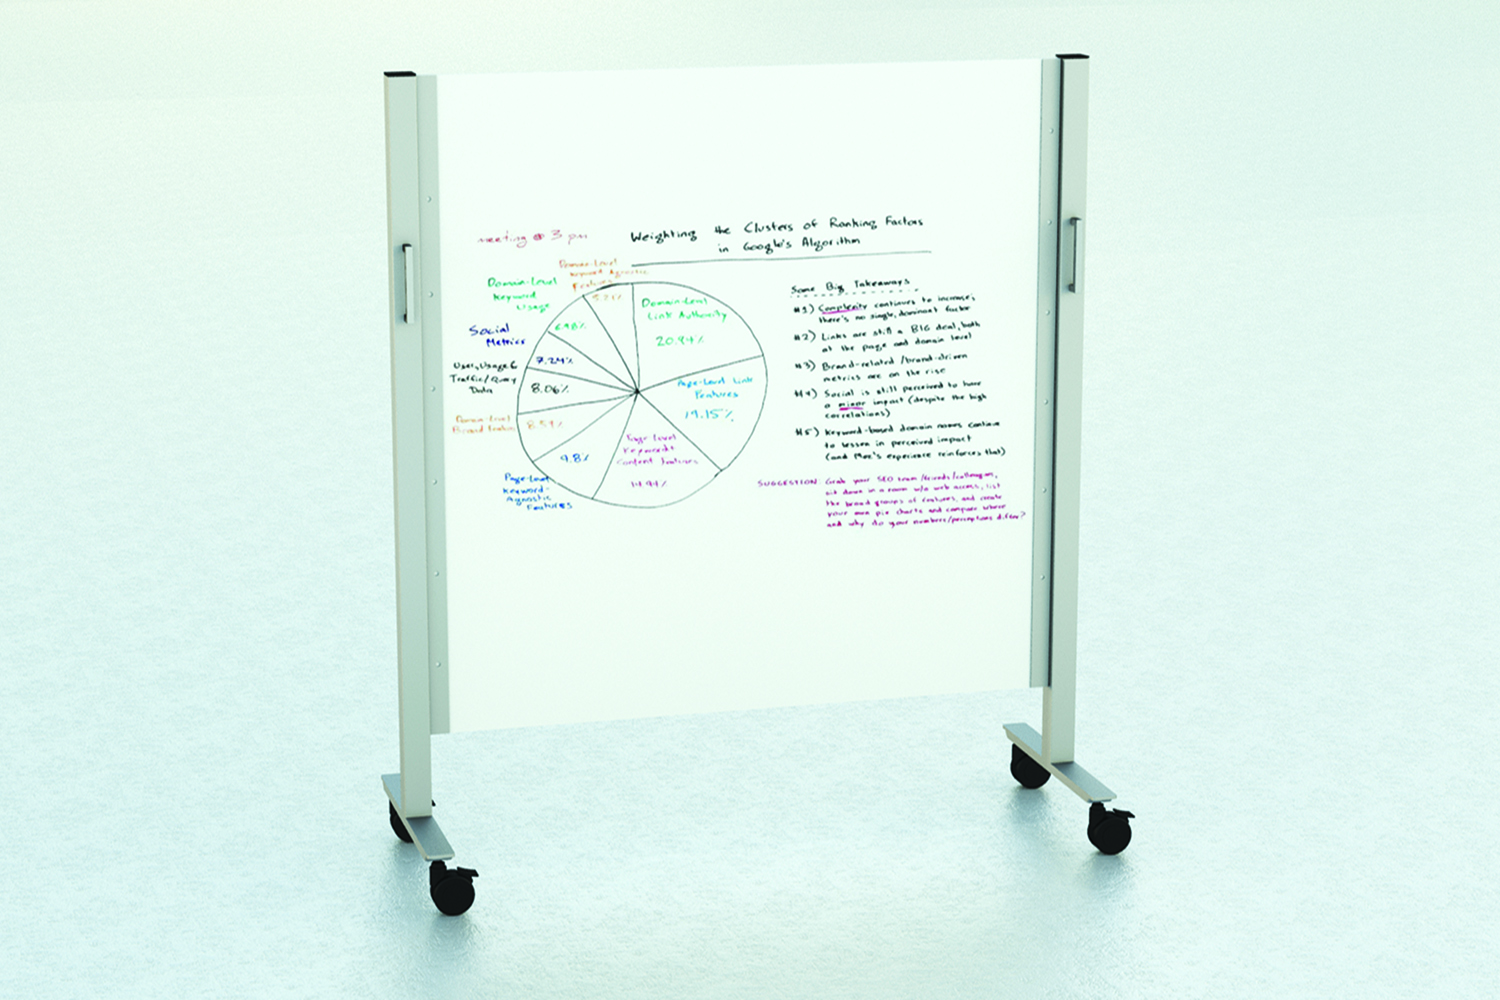 meeting @ 3 pm
Weighting the Clusters of Ranking Factors
in Google's Algorithm
Domain-Level
Keyword Agnostic
Features
5.21%
Domain-Level
Keyword
Usage
6.98%
Social
Metrics
7.24%
User, Usage &
Traffic/Query
Data
8.06%
Domain-Level
Brand Features
8.59%
Page-Level
Keyword-
Agnostic
Features
9.8%
Page-Level
Keyword +
Content Features
14.94%
Page-Level Link
Features
19.15%
Domain-Level
Link Authority
20.94%
Some Big Takeaways
#1) Complexity continues to increase;
there's no single, dominant factor
#2) Links are still a BIG deal, both
at the page and domain level
#3) Brand-related/brand-driven
metrics are on the rise
#4) Social is still perceived to have
a minor impact (despite the high
correlations)
#5) Keyword-based domain names continue
to lessen in perceived impact
(and Moz's experience reinforces that)
SUGGESTION: Grab your SEO team/friends/colleagues,
sit down in a room w/o web access, list
the broad groups of features, and create
your own pie charts and compare where
and why do your numbers/perceptions differ?